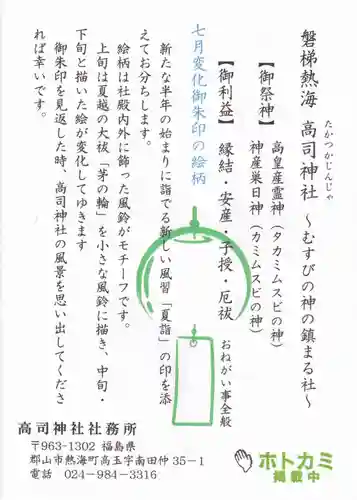 磐梯熱海　高司神社　～むすびの神の鎮まる社～
たかつかじんじゃ
【御祭神】　高皇産霊神（タカミムスビの神）
神産巣日神（カミムスビの神）
【御利益】　縁結・安産・子授・厄祓　おねがい事全般
七月変化御朱印の絵柄
新たな半年の始まりに詣でる新しい風習「夏詣」の印を添
えてお分ちします。
絵柄は社殿内外に飾った風鈴がモチーフです。
上旬は夏越の大祓「茅の輪」を小さな風鈴に描き、中旬・
下旬と描いた絵が変化してゆきます
御朱印を見返した時、高司神社の風景を思い出してくださ
れば幸いです。
高司神社社務所
〒963-1302 福島県
郡山市熱海町高玉字南田仲35－1
電話　024－984－3316
ホトカミ
掲載中